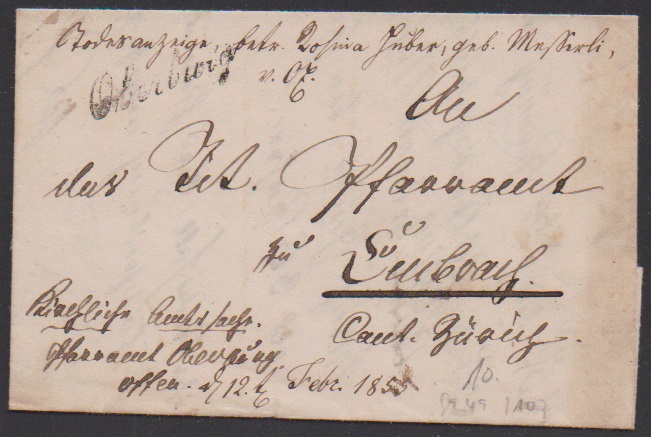 Todesanzeige, betr. Rosina Huber, geb. Messerli,
v. O.
Oberburg
An
das Tit. Pfarramt
zu
Embrach.
Cant. Zürich.
Kirchliche Amtssache.
Pfarramt Oberburg
offen. d. 12. t. Febr. 185
10.